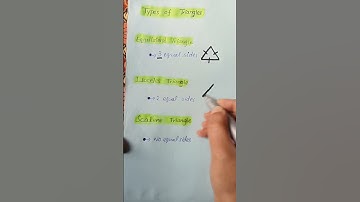 Types of Triangle
Equilateral Triangle
3 equal sides
Triangle
2 equal sides
Scalene Triangle
No equal sides